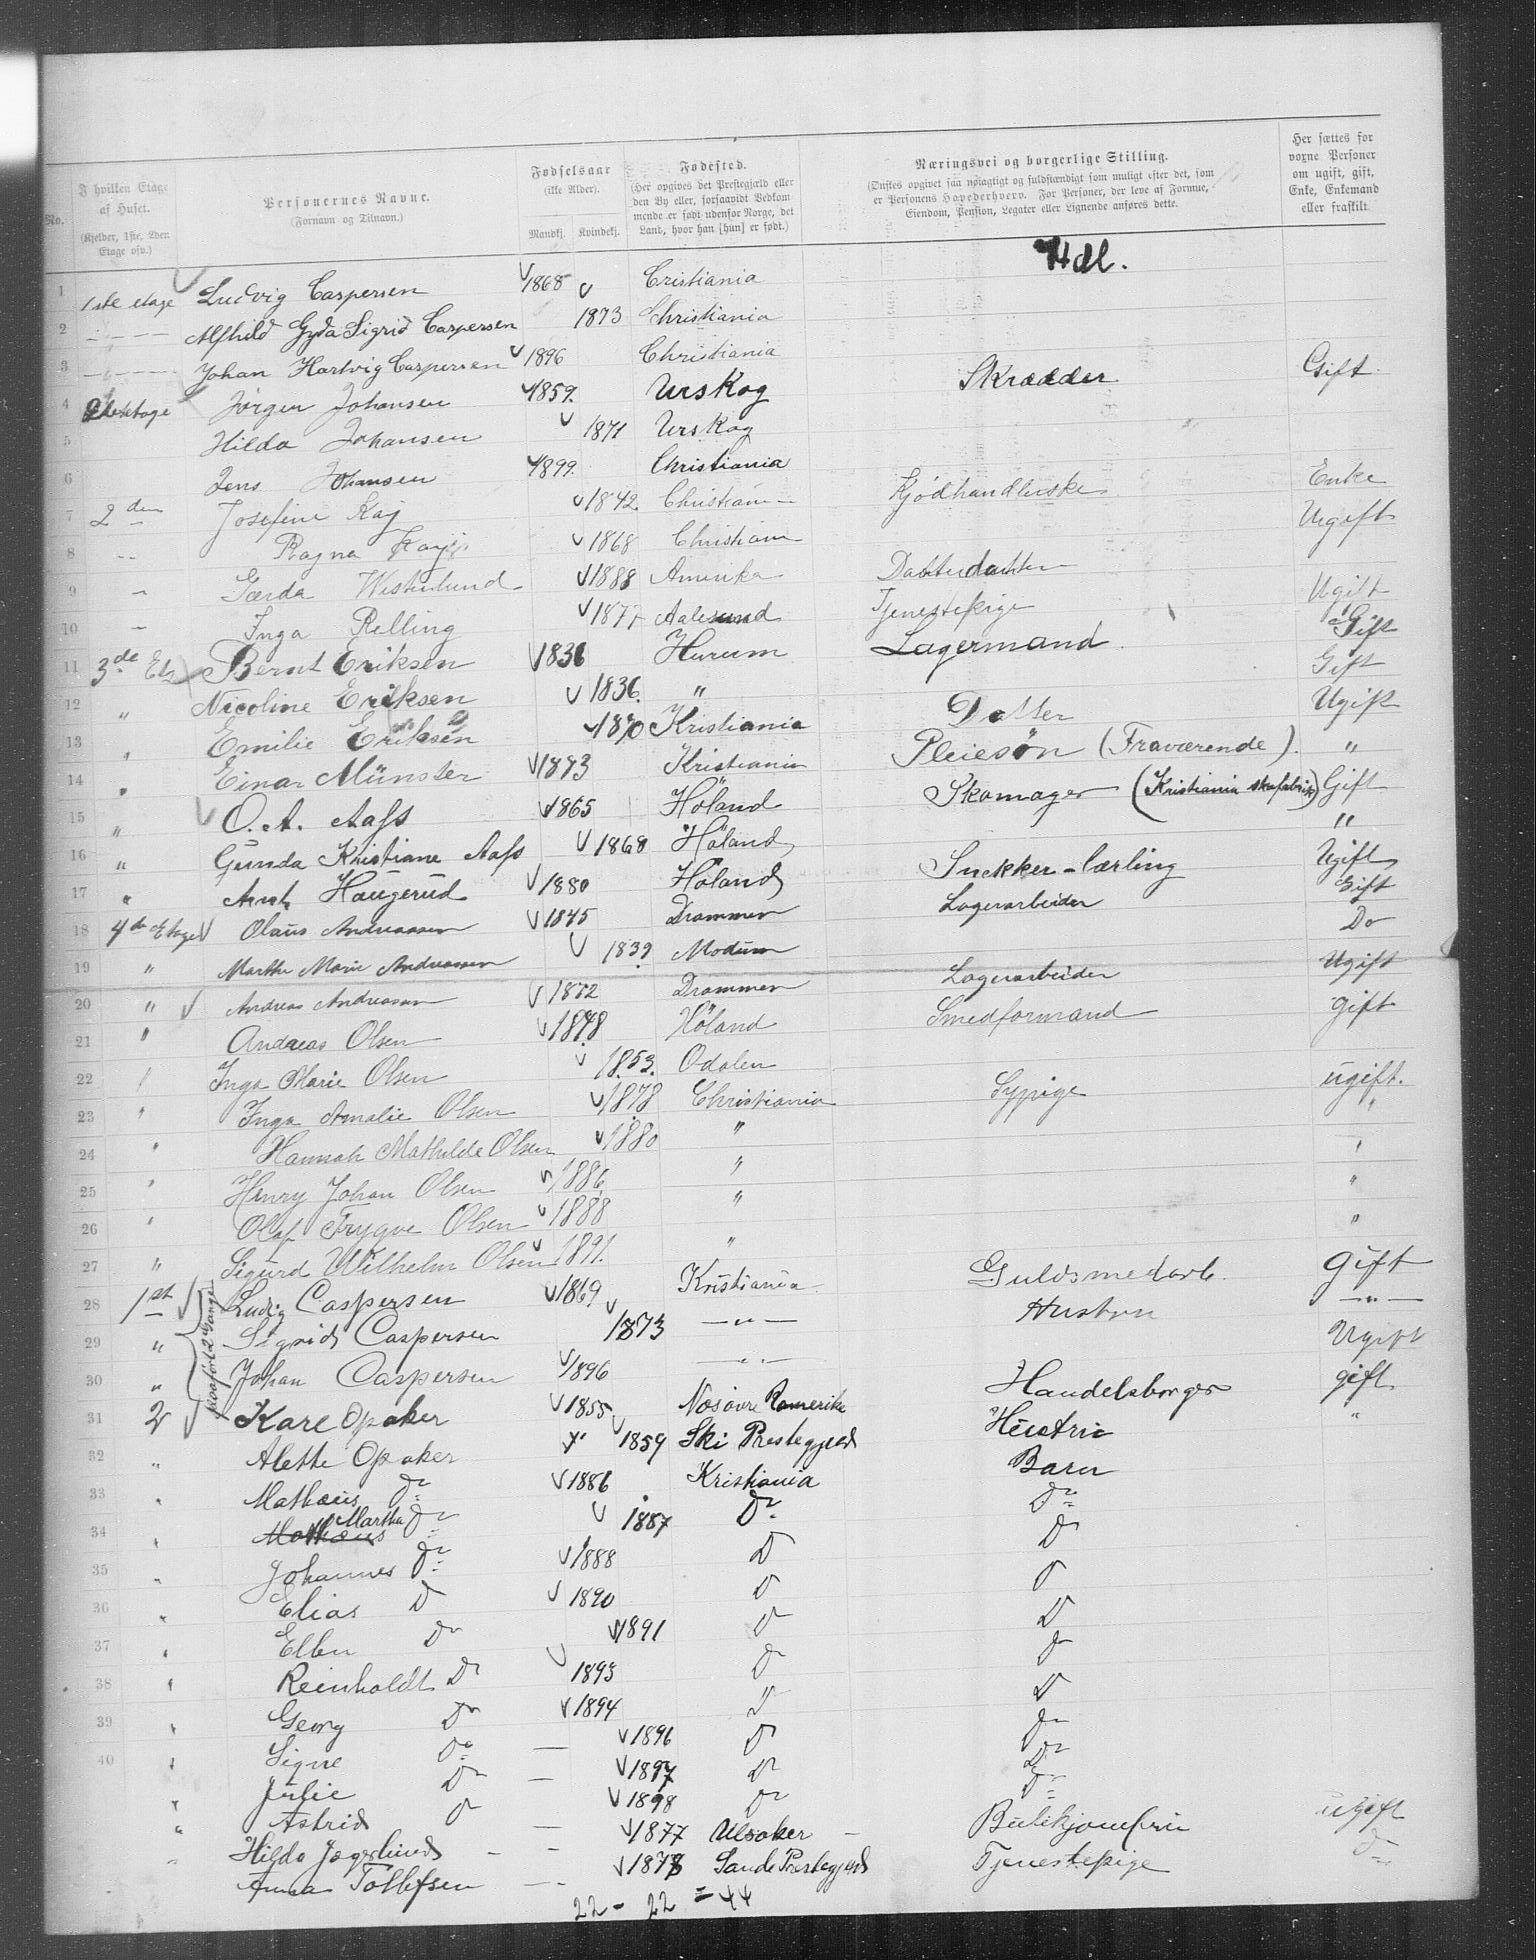 No.
I hvilken Etage af Huset. (Kjelder, 1ste, 2den Etage osv.)
Personernes Navne. (Fornavn og Tilnavn.)
Fødselsaar (ikke Alder). Mandkj. Kvindekj.
Fødested. (Her opgives det Prestegjæld eller den By eller, forsaavidt Vedkommende er født udenfor Norge, det Land, hvor han [hun] er født.)
Næringsvei og borgerlige Stilling. (Ønskes opgivet saa nøiagtigt og fuldstændigt som muligt efter det, som er Personens Hovederhverv. For Personer, der leve af Formue, Eiendom, Pension, Legater eller Lignende anføres dette.
Her sættes for voxne Personer om ugift, gift, Enke, Enkemand eller fraskilt.
Hdl.
1 1ste etage Ludvig Caspersen 1868 Cristiania
2 Alfhild Gyda Sigrid Caspersen 1873 Christiania
3 Johan Hartvig Caspersen 1896 Christiania
4 etage Jørgen Johansen 1859. Urskog Skrædder Gift.
5 Hilda Johansen 1871 Urskog
6 Jens Johansen 1899. Christiania
7 2den Josefine Kaj 1842 Christiania Kjødhandlerske Enke
8 Ragna Kaj 1868 Christiania Ugift
9 Gerda Westerlund 1888 Amerika Datterdatter
10 Inga Relling 1877 Aalesund Tjenestepige Ugift
11 3de Etg Bernt Eriksen 1836 Hurum Lagermand Gift
12 " Nicoline Eriksen 1836. " Gift
13 " Emilie Eriksen 1870 Kristiania Datter Ugift
14 " Einar Münster 1893 Kristiania Pleiesøn (Fraværende). "
15 " O. A. Aass 1865 Höland Skomager (Kristiania skofabrik) Gift
16 " Gunda Kristiane Aass 1868 Höland "
17 " Haugerud 1880 Höland Snekker-lærling Ugift
18 4de Etage Olaus Andreassen 1845 Drammen Lagerarbeider Gift
19 " Marthe Marie Andreassen 1839 Modum Do
20 " Andreas Andreassen 1872 Drammen Lagerarbeider Ugift
21 " Andreas Olsen 1848 Höland Smedformand gift
22 Inga Marie Olsen 1853. Odalen
23 " Inga Amalie Olsen 1878 Christiania Sypige ugift.
24 " Hannah Mathilde Olsen 1880 " "
25 " Henry Johan Olsen 1886 " "
26 " Olaf Trygve Olsen 1888 " "
27 " Sigurd Wilhelm Olsen 1891. " "
28 1st Ludvig Caspersen 1869 Kristiania Guldsmedarb. gift
29 " Sigrid Caspersen 1873 —"— Hustru —"—
30 " Johan Caspersen 1896 —"— Ugift
opført 2 Gange
31 2 Kare Opaker 1855 Nes Øvre Romerike Handelsborger gift
32 " Alette Opaker 1859 Ski Prestegjeld Hustru "
33 " Mathæus Do 1886 Kristiania Barn
34 " Mathæus Martha Do 1887 Do Do
35 " Johannes Do 1888 Do Do
36 " Elias Do 1890 Do Do
37 " Ellen Do 1891 Do Do
38 " Reinholdt Do 1893 Do Do
39 " Georg Do 1894 Do Do
40 " Signe Do — 1896 Do Do
" Julie Do — 1897 Do Do
" Astrid Do 1898 Do Do
" Hilda Jægerlund — 1877 Ulsaker — Butikjomfru ugift
Anna Tollefsen — 1878 Sande Prestegjeld Tjenestepige Do
22 - 22 = 44